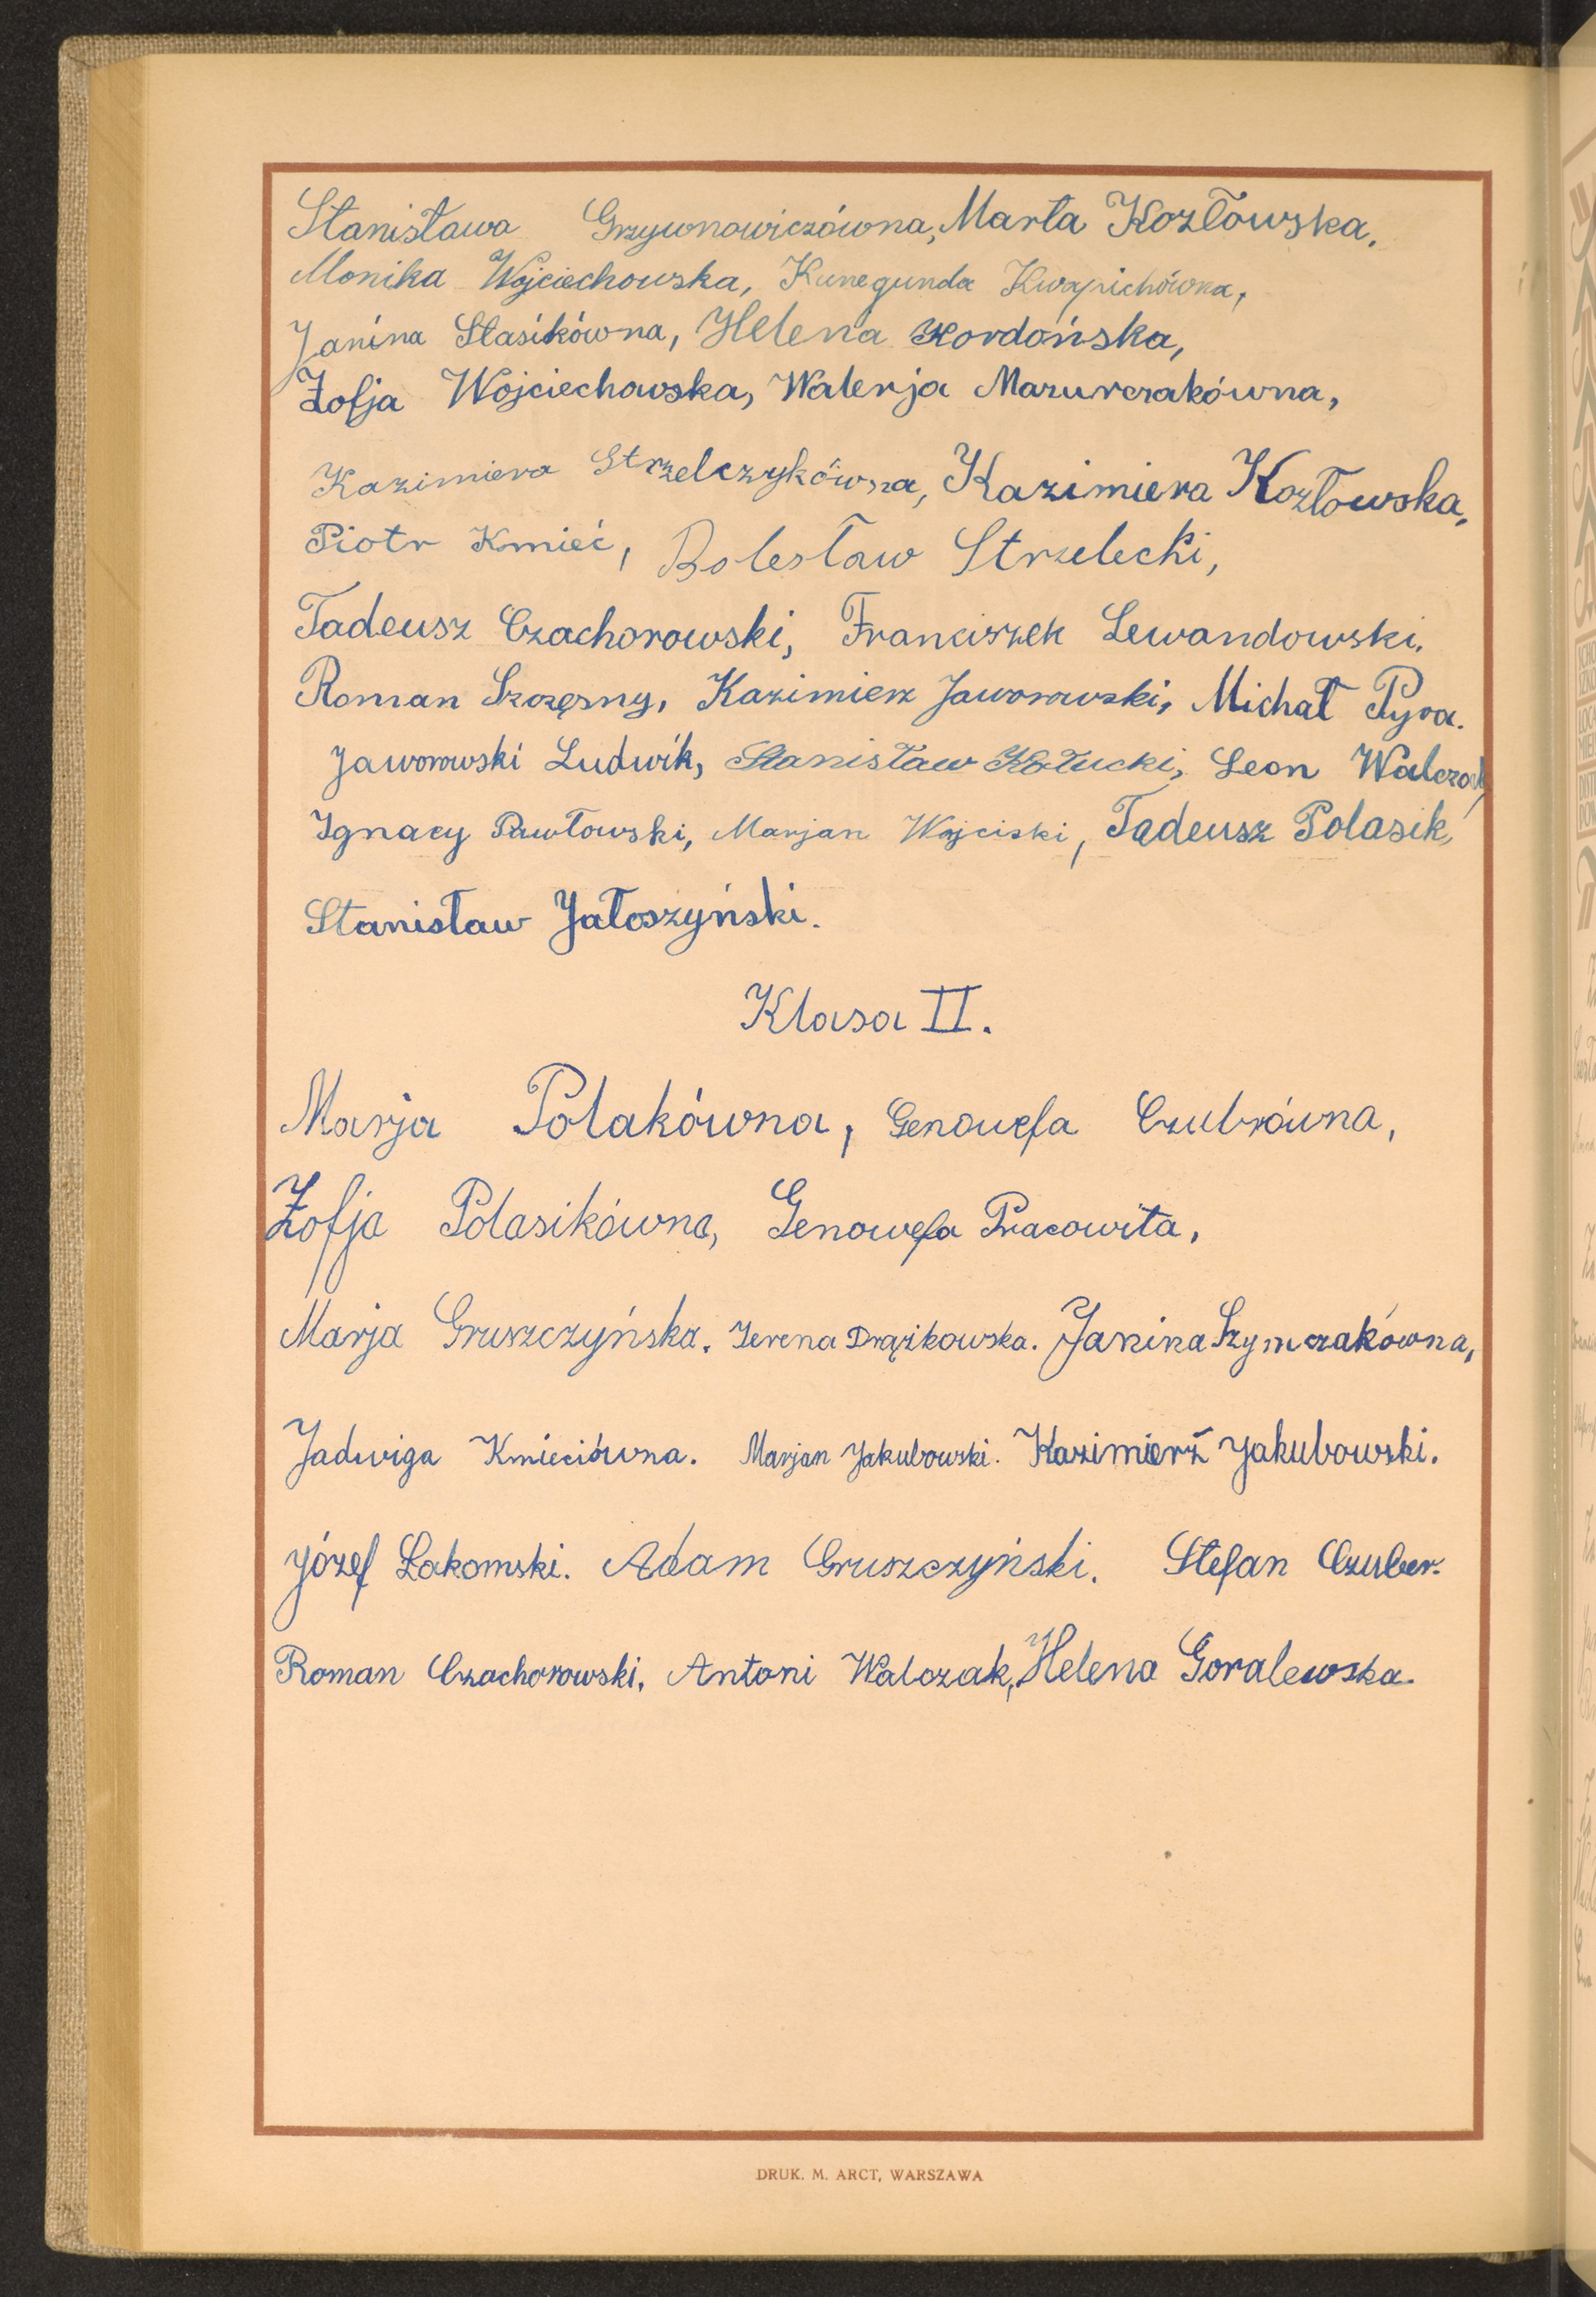 Stanisława Grzywnowiczówna, Marta Kozłowska,
Monika Wojciechowska, Kunegunda Kwapichówna,
Janina Stasikówna, Helena Kordońska,
Zofja Wojciechowska, Walerja Mazurczakówna,
Kazimiera Strzelczykówna, Kazimiera Kozłowska,
Piotr Kmieć, Bolesław Strzelecki,
Tadeusz Czachorowski, Franciszek Lewandowski.
Roman Szczęsny, Kazimierz Jaworowski, Michał Pyra.
Jaworowski Ludwik, Stanisław Kołucki, Leon Walczak,
Ignacy Pawłowski, Marjan Wojciski, Tadeusz Polasik,
Stanisław Jałoszyński.
Klasa II.
Marja Polakówna, Genowefa Czubrówna,
Zofja Polasikówna, Genowefa Pracowita,
Marja Gruszczyńska. Irena Drążkowska. Janina Szymczakówna,
Jadwiga Kmieciówna. Marjan Jakubowski. Kazimierz Jakubowski.
Józef Łakomski. Adam Gruszczyński. Stefan Czuber.
Roman Czachorowski, Antoni Walczak, Helena Goralewska.
DRUK. M. ARCT, WARSZAWA